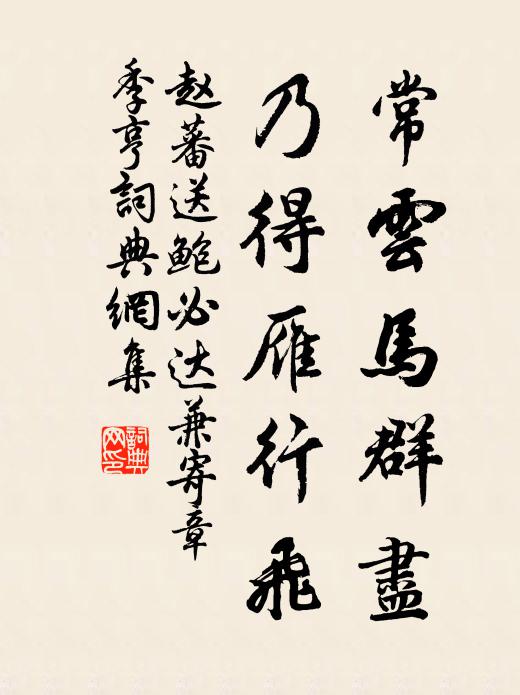 常雲馬群盡
乃得雁行飛
赵蕃送鲍必达兼寄章
季亨詞典網集
詞典
网印